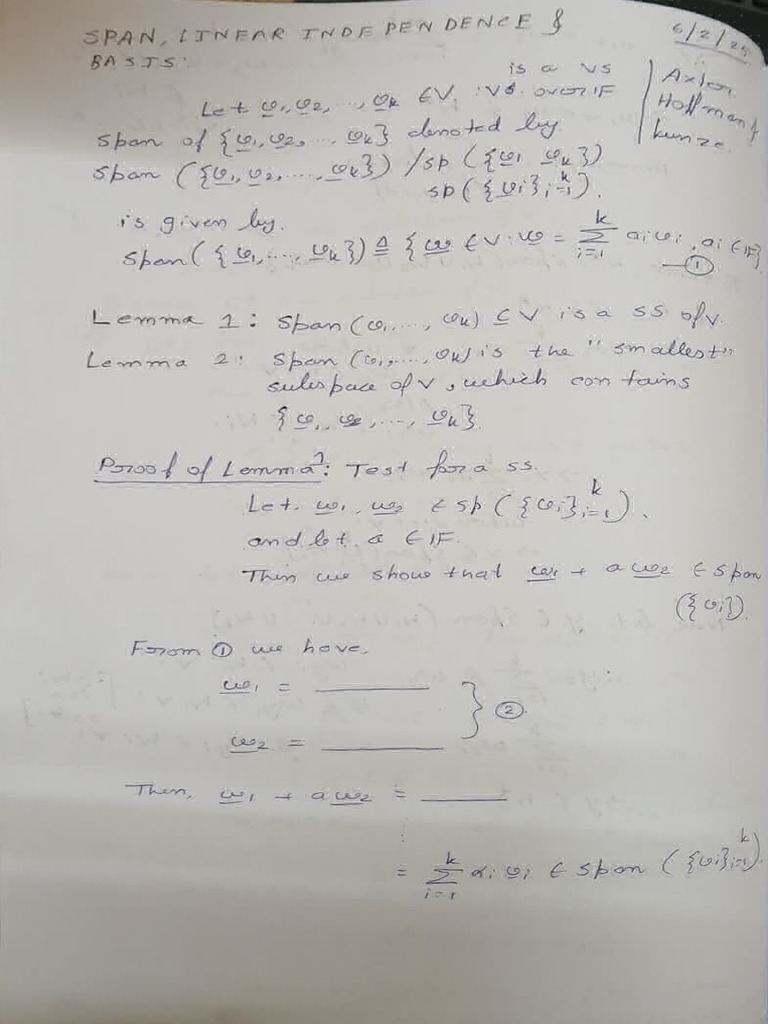 SPAN, LINEAR INDEPENDENCE &
BASIS:
6/2/25
Axler
Hoffman &
Kunze.
is a VS
Let v1, v2, ..., vk ∈ V, : VS. over IF
span of {v1, v2, ..., vk} denoted by
span ({v1, v2, ..., vk}) / sp ({v1 vk})
sp({vi} i=1 k).
is given by.
span({v1, ..., vk}) ≜ {v ∈ V : v = k Σ i=1 ai vi, ai ∈ IF}
①
Lemma 1: span (v1, ..., vk) ⊆ V is a SS of V.
Lemma 2: span (v1, ..., vk) is the "smallest"
subspace of V, which contains
{v1, v2, ..., vk}.
Proof of Lemma 1: Test for a SS.
Let w1, w2 ∈ sp ({vi} i=1 k).
and let a ∈ IF.
Then we show that w1 + a w2 ∈ span
({vi}).
From ① we have,
w1 = ______
w2 = ______ } ②
Then, w1 + a w2 = ______
⋮
= k Σ i=1 αi vi ∈ span ({vi} i=1 k).